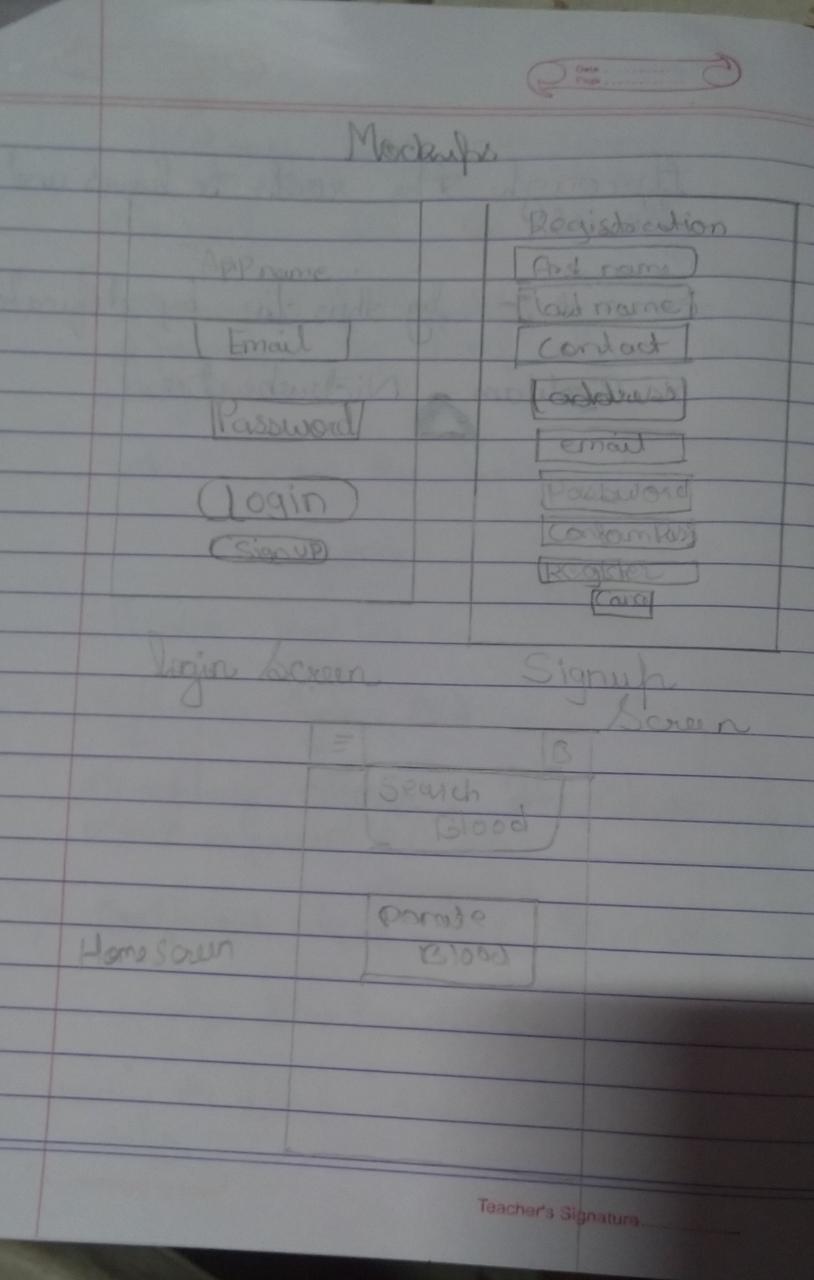 Date
Page
Mockups
App name
Email
Password
Login
Signup
Login Screen
Registration
first name
last name
Contact
address
email
Password
Register
Signup
Screen
B
Search
Blood
Donate
Blood
Home Screen
Teacher's Signature